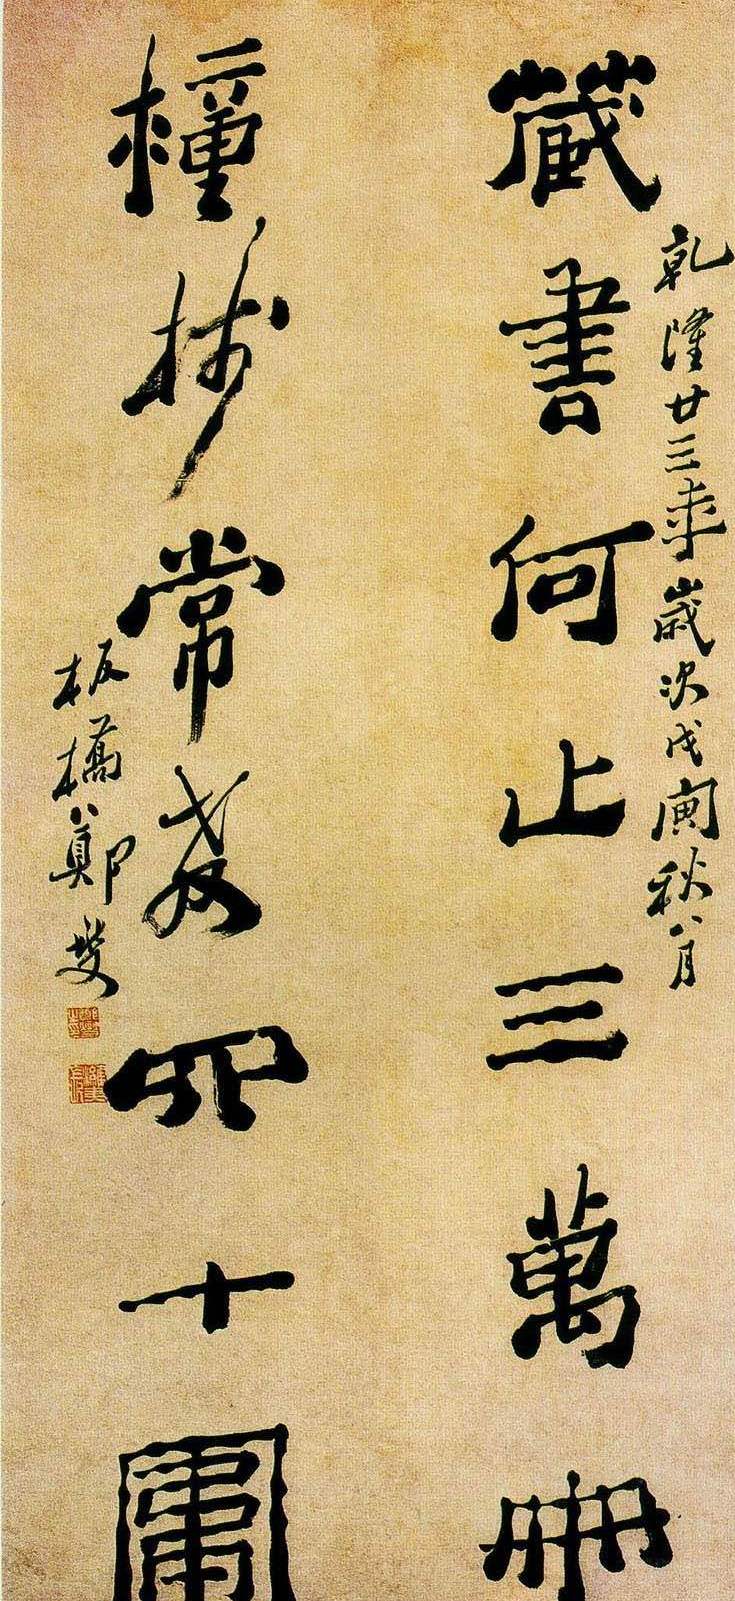 乾隆廿三年歲次戊寅秋八月
藏書何止三萬冊
種樹常教四十圍
板橋鄭燮